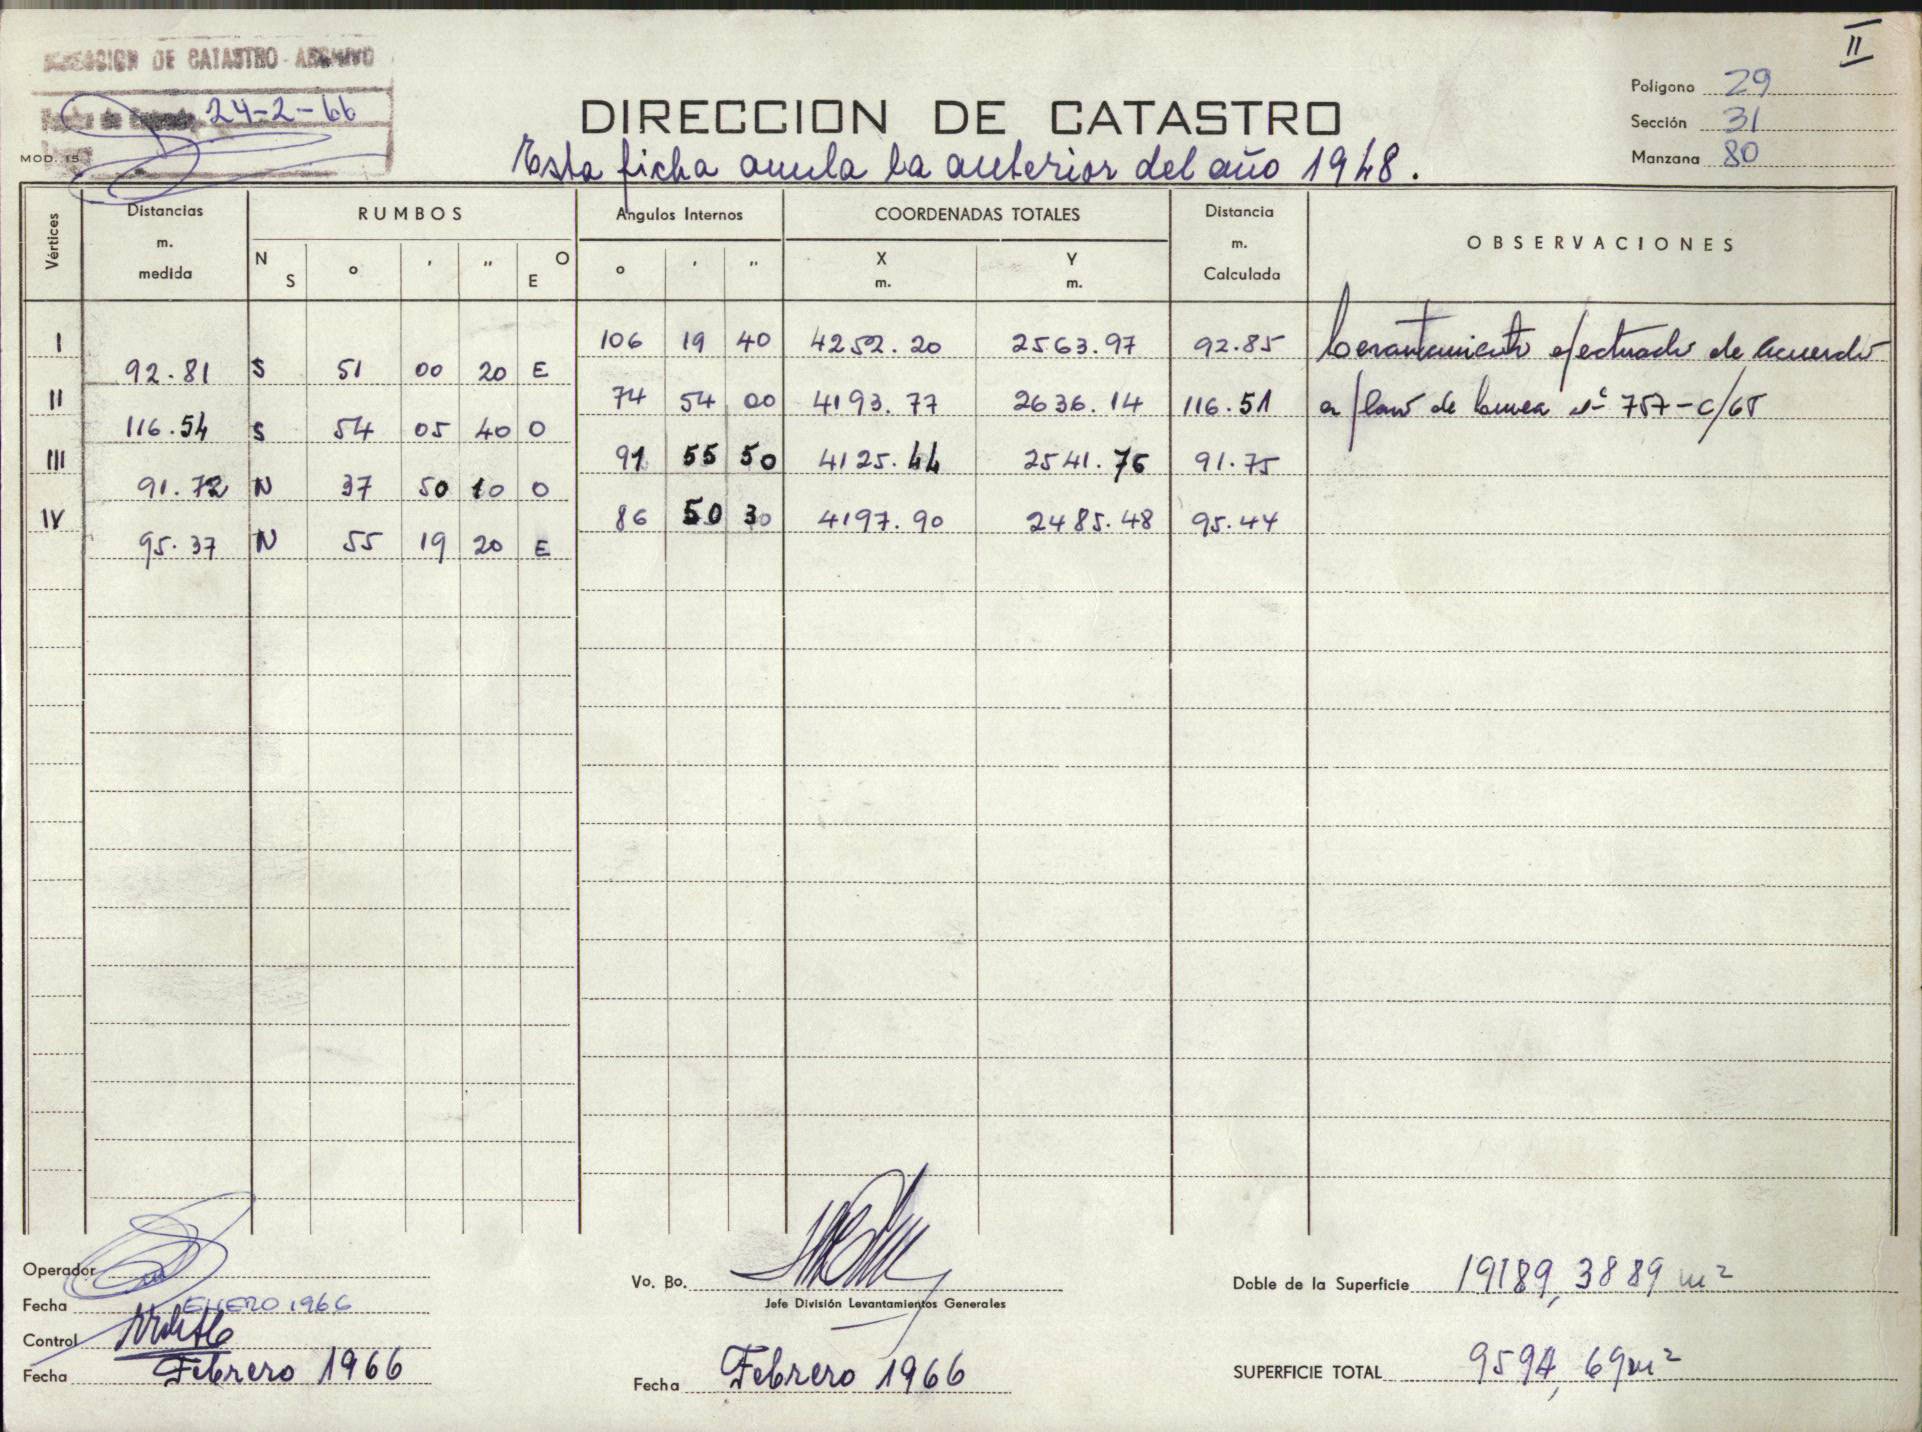 II
DIRECCION DE CATASTRO - ARCHIVO
24-2-66
MOD. 15
DIRECCION DE CATASTRO
Esta ficha anula la anterior del año 1948.
Polígono 29
Sección 31
Manzana 80
Vértices
Distancias
m.
medida
RUMBOS
N S ° ' " O E
Angulos Internos
° ' "
COORDENADAS TOTALES
X m.
Y m.
Distancia
m.
Calculada
OBSERVACIONES
I 106 19 40 4252.20 2563.97 92.85 Levantamiento efectuado de acuerdo
92.81 S 51 00 20 E
II 74 54 00 4193.77 2636.14 116.51 a plano de linea nº 757-C/65
116.54 S 54 05 40 O
III 91 55 50 4125.44 2541.76 91.75
91.72 N 37 50 10 O
IV 86 50 30 4197.90 2485.48 95.44
95.37 N 55 19 20 E
Operador
Fecha ENERO 1966
Control
Fecha Febrero 1966
Vo. Bo.
Jefe División Levantamientos Generales
Fecha Febrero 1966
Doble de la Superficie 19189,3889 m²
SUPERFICIE TOTAL 9594,69 m²